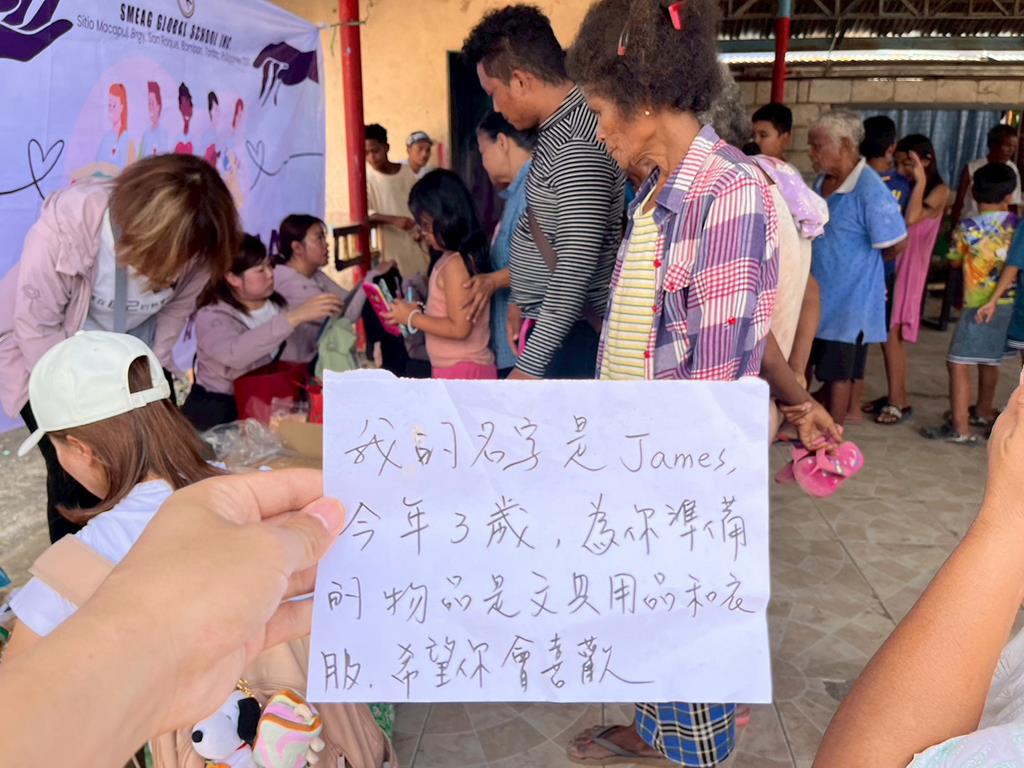 SMEAG GLOBAL SCHOOL INC.
Sitio Macapul, Brgy. San Roque, Bamban, Tarlac, Philippines
我的名字是James,
今年3歲,為你準備
的物品是文具用品和衣
服.希望你會喜歡